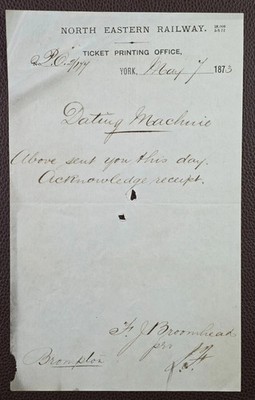 NORTH EASTERN RAILWAY.
TICKET PRINTING OFFICE,
YORK, May 7 1873
Dating Machine
Above sent you this day.
Acknowledge receipt.
F. J. Broomhead
pro
Brompton